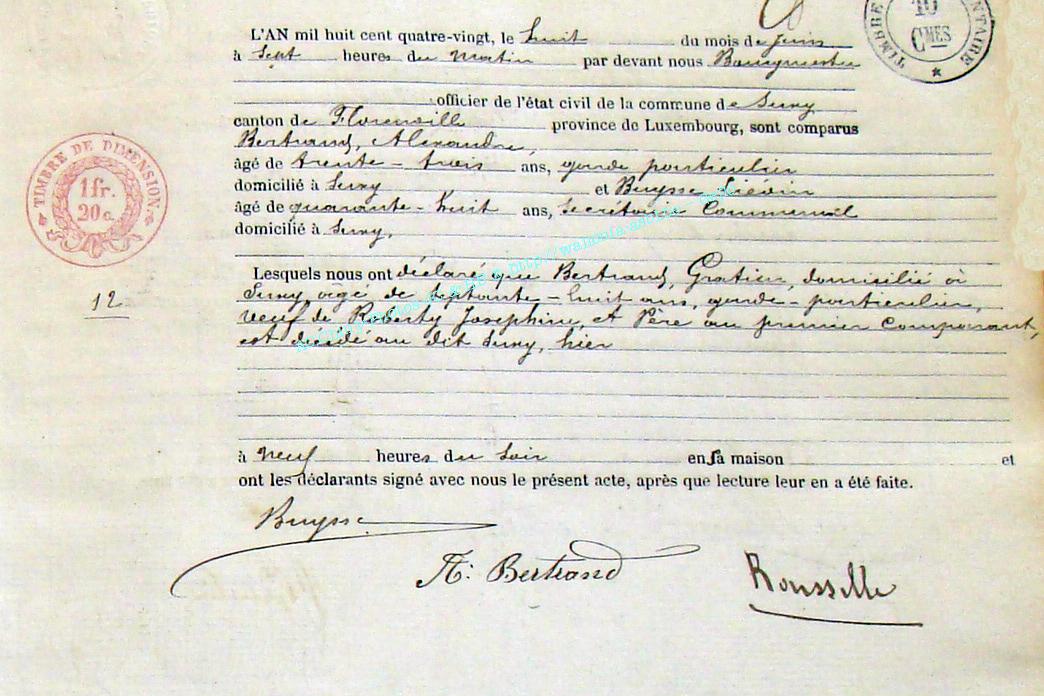 TIMBRE
10
CMES
L'AN mil huit cent quatre-vingt, le huit du mois de Juin
à Sept heures du Matin par devant nous Bourgmestre
officier de l'état civil de la commune de Suxy
canton de Florenville province de Luxembourg, sont comparus
Bertrand, Alexandre,
âgé de trente-trois ans, garde particulier
domicilié à Suxy et Buysse Liévin
âgé de quarante-huit ans, Secrétaire Communal
domicilié à Suxy,
TIMBRE DE DIMENSION
1 fr.
20 c.
12
Lesquels nous ont déclaré que Bertrand, Gratien, domicilié à
Suxy âgé de septante-huit ans, garde-particulier,
veuf de Roberty Josephine, et Père au premier Comparant,
est décédé au dit Suxy, hier
à neuf heures du Soir en sa maison et
ont les déclarants signé avec nous le présent acte, après que lecture leur en a été faite.
Buysse
A: Bertrand
Rousselle